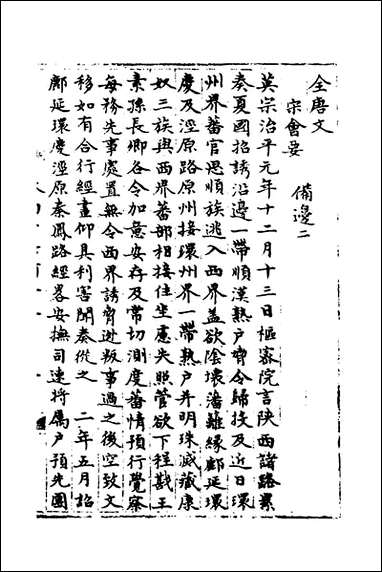 全唐文
宋會要
備邊二
英宗治平元年十二月十三日樞密院言陝西諸路累
奏夏國招誘沿邊一帶順漢熟戶脅令歸投及近日環
州界蕃官思順族逃入西界蓋欲陰壞藩籬緣鄜延環
慶及涇原路原州接環州界一帶熟戶并明珠滅藏康
奴三族與西界蕃部相接住坐慮失照管欲下程戡王
素孫長卿各令加意安存及常切測度蕃情預行覺察
每務先事處置無令西界誘脅逃叛事過之後空致文
移如有合行經畫仰具利害聞奏從之　二年五月詔
鄜延環慶涇原秦鳳路經畧安撫司速將屬戶預先團